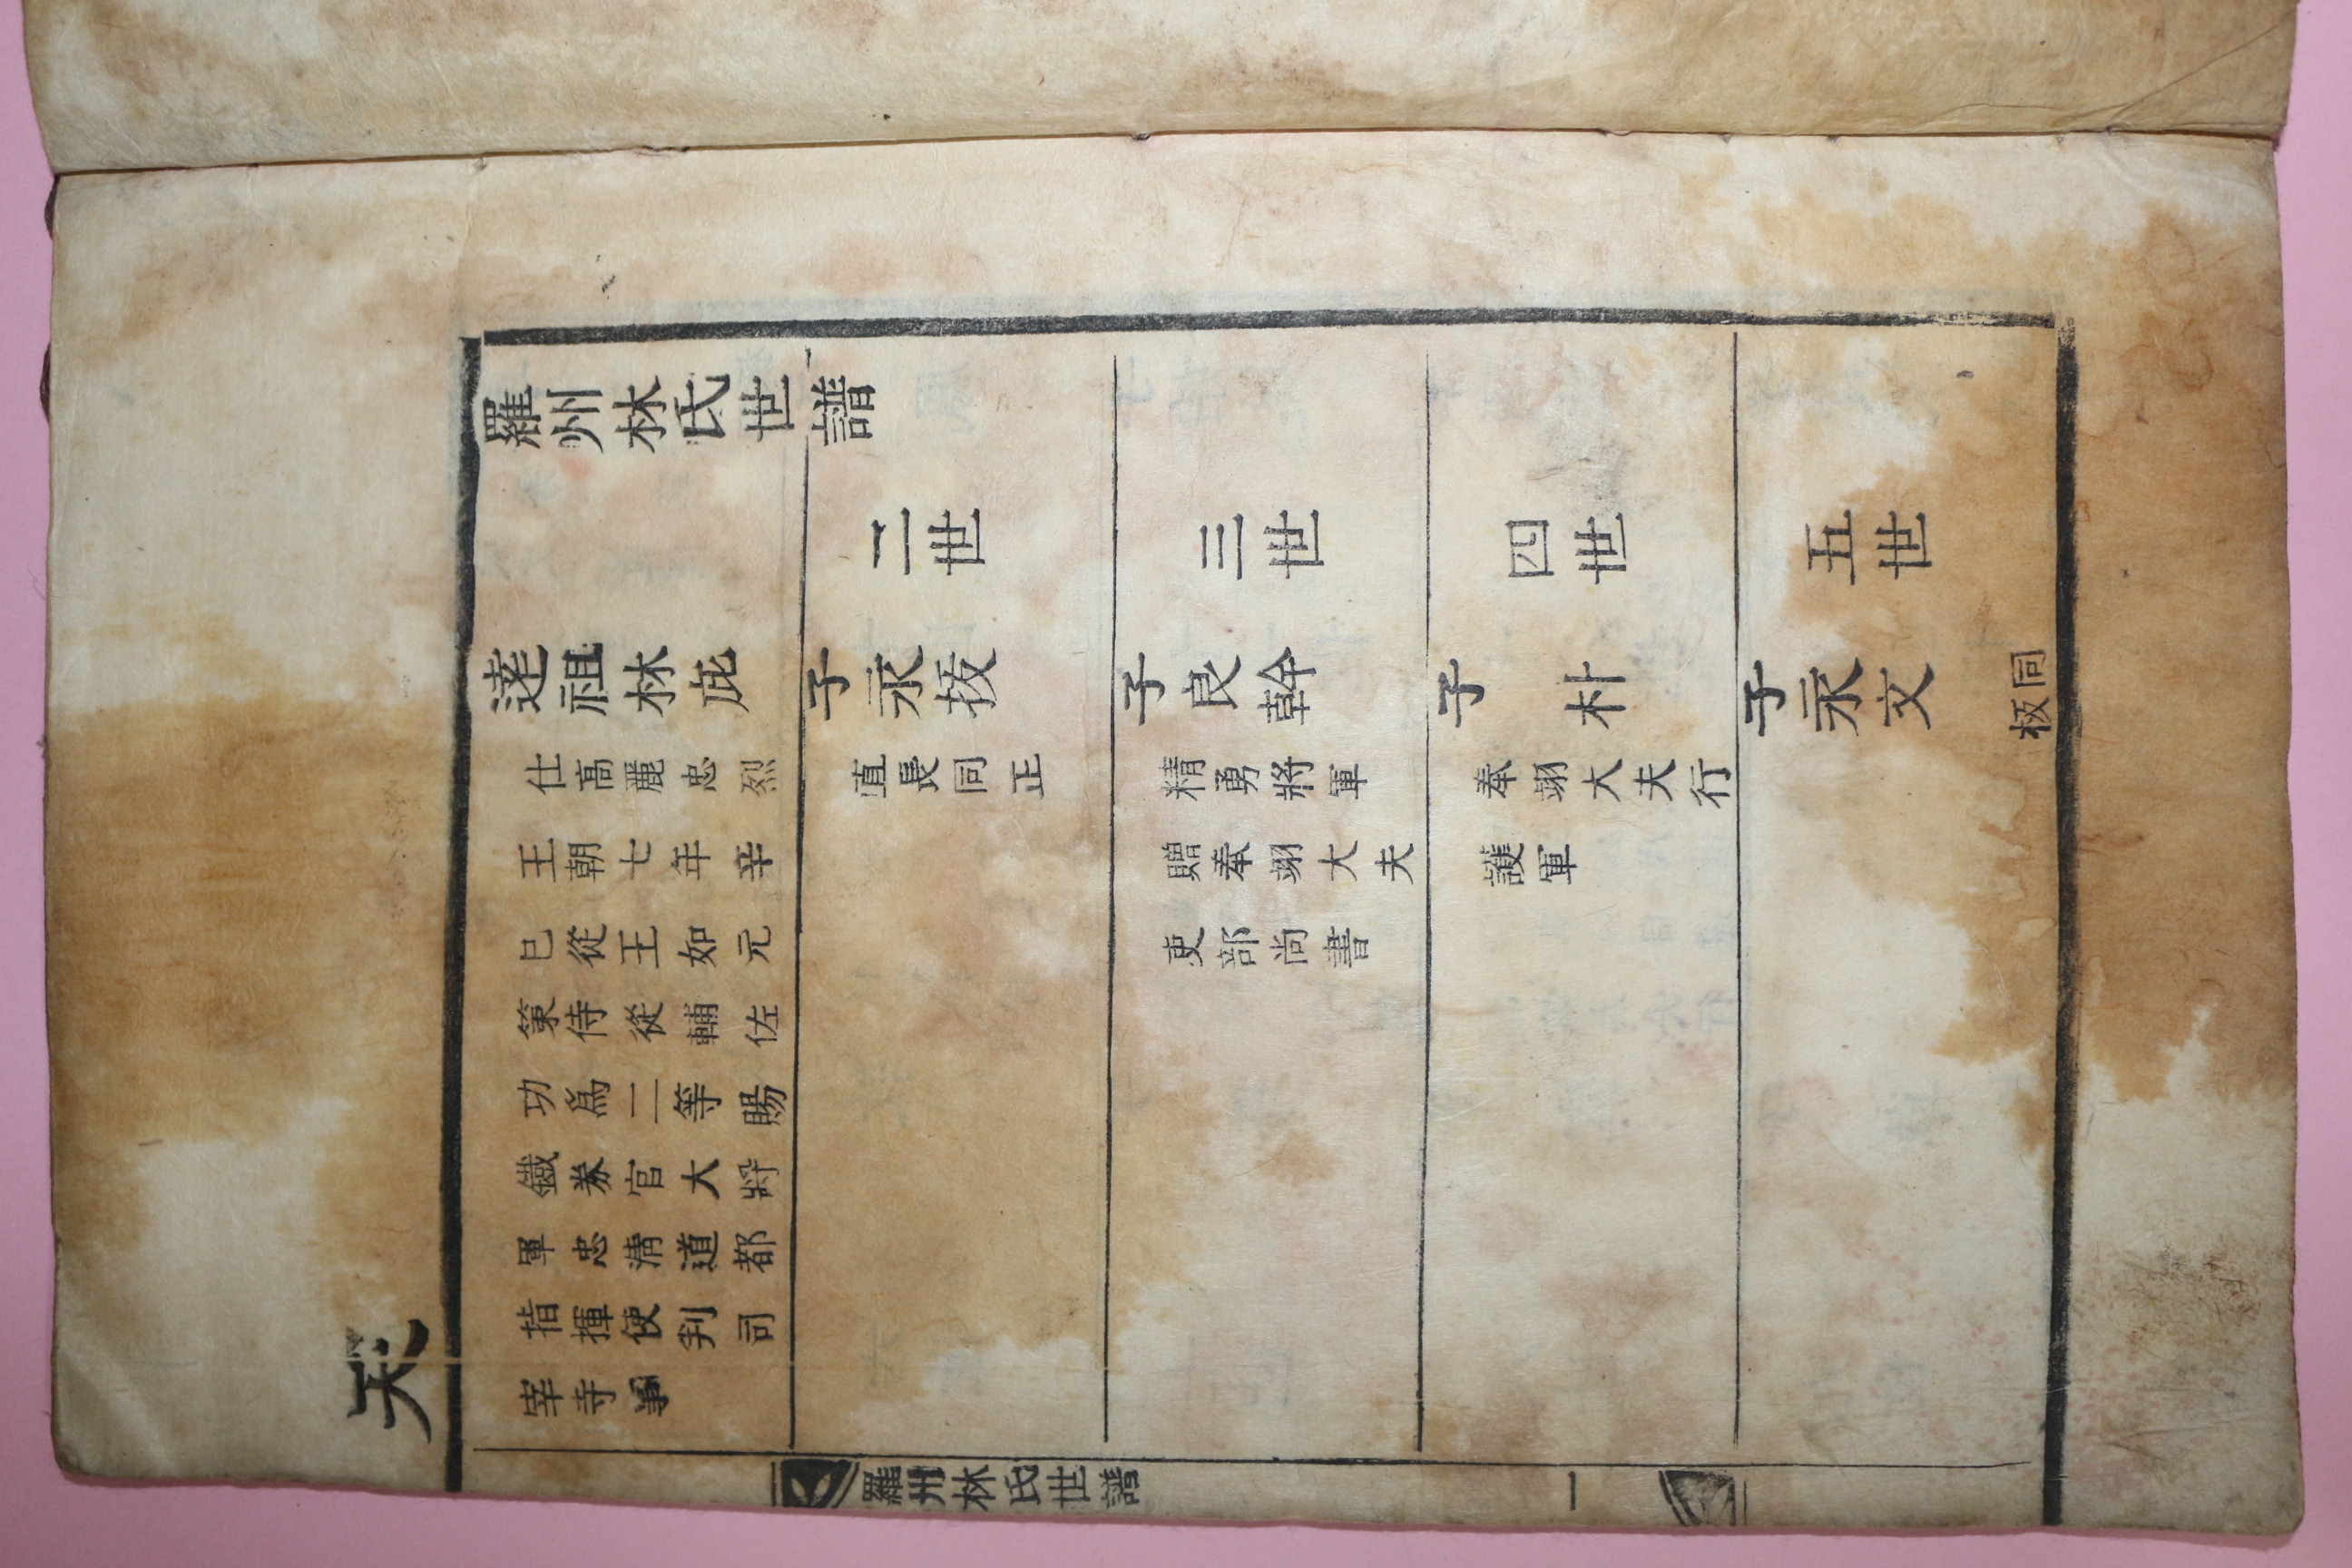 羅州林氏世譜
逺祖林庇
仕高麗忠烈
王朝七年辛
巳從王如元
策侍從輔佐
功爲二等賜
鐵券官大將
軍忠淸道都
指揮使判司
宰寺事
二世
子永拔
直長同正
三世
子良幹
精勇將軍
贈奉翊大夫
吏部尚書
四世
子 朴
奉翊大夫行
護軍
五世
子永文
同板
天
羅州林氏世譜
一